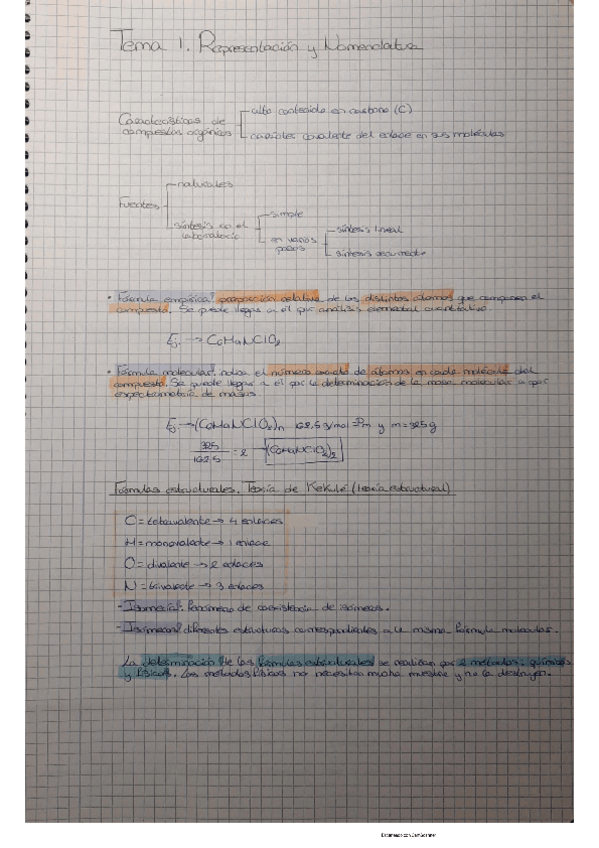 Tema 1. Representación y Nomenclatura
Características de compuestos orgánicos
alto contenido en carbono (C)
carácter covalente del enlace en sus moléculas
Fuentes
naturales
síntesis en el laboratorio
simple
en varios pasos
síntesis lineal
síntesis
· Fórmula empírica: proporción relativa de los distintos átomos que componen el
compuesto. Se puede llegar a él por análisis elemental cuantitativo.
Ej → C6H4NClO2
· Fórmula molecular: indica el número exacto de átomos en cada molécula del
compuesto. Se puede llegar a el por la determinación de la masa molecular o por
espectrometría de masas
Ej → (C6H4NClO2)n 162,5 g/mol = Pm y m = 325 g
325/162.5 = 2 → (C6H4NClO2)2
Fórmulas estructurales. Teoría de Kekulé (teoría estructural)
C = tetravalente → 4 enlaces
H = monovalente → 1 enlace
O = divalente → 2 enlaces
N = trivalente → 3 enlaces
- Isomería: fenómeno de coexistencia de isómeros.
- Isómeros: diferentes estructuras correspondientes a la misma fórmula molecular.
La determinación de las fórmulas estructurales se realizan por 2 métodos: químicos
y físicos. Los métodos físicos no necesitan mucha muestra y no la destruyen.